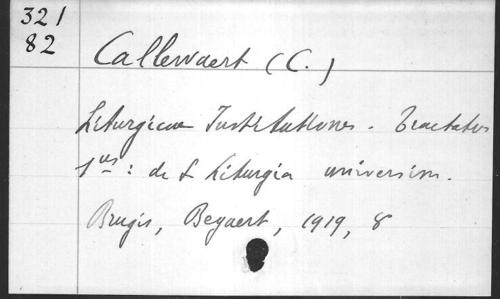 321
82
Callewaert (C.)
Liturgicae Institutiones. Tractatus
1us: de S Liturgia universim.
Brugis, Beyaert, 1919, 8